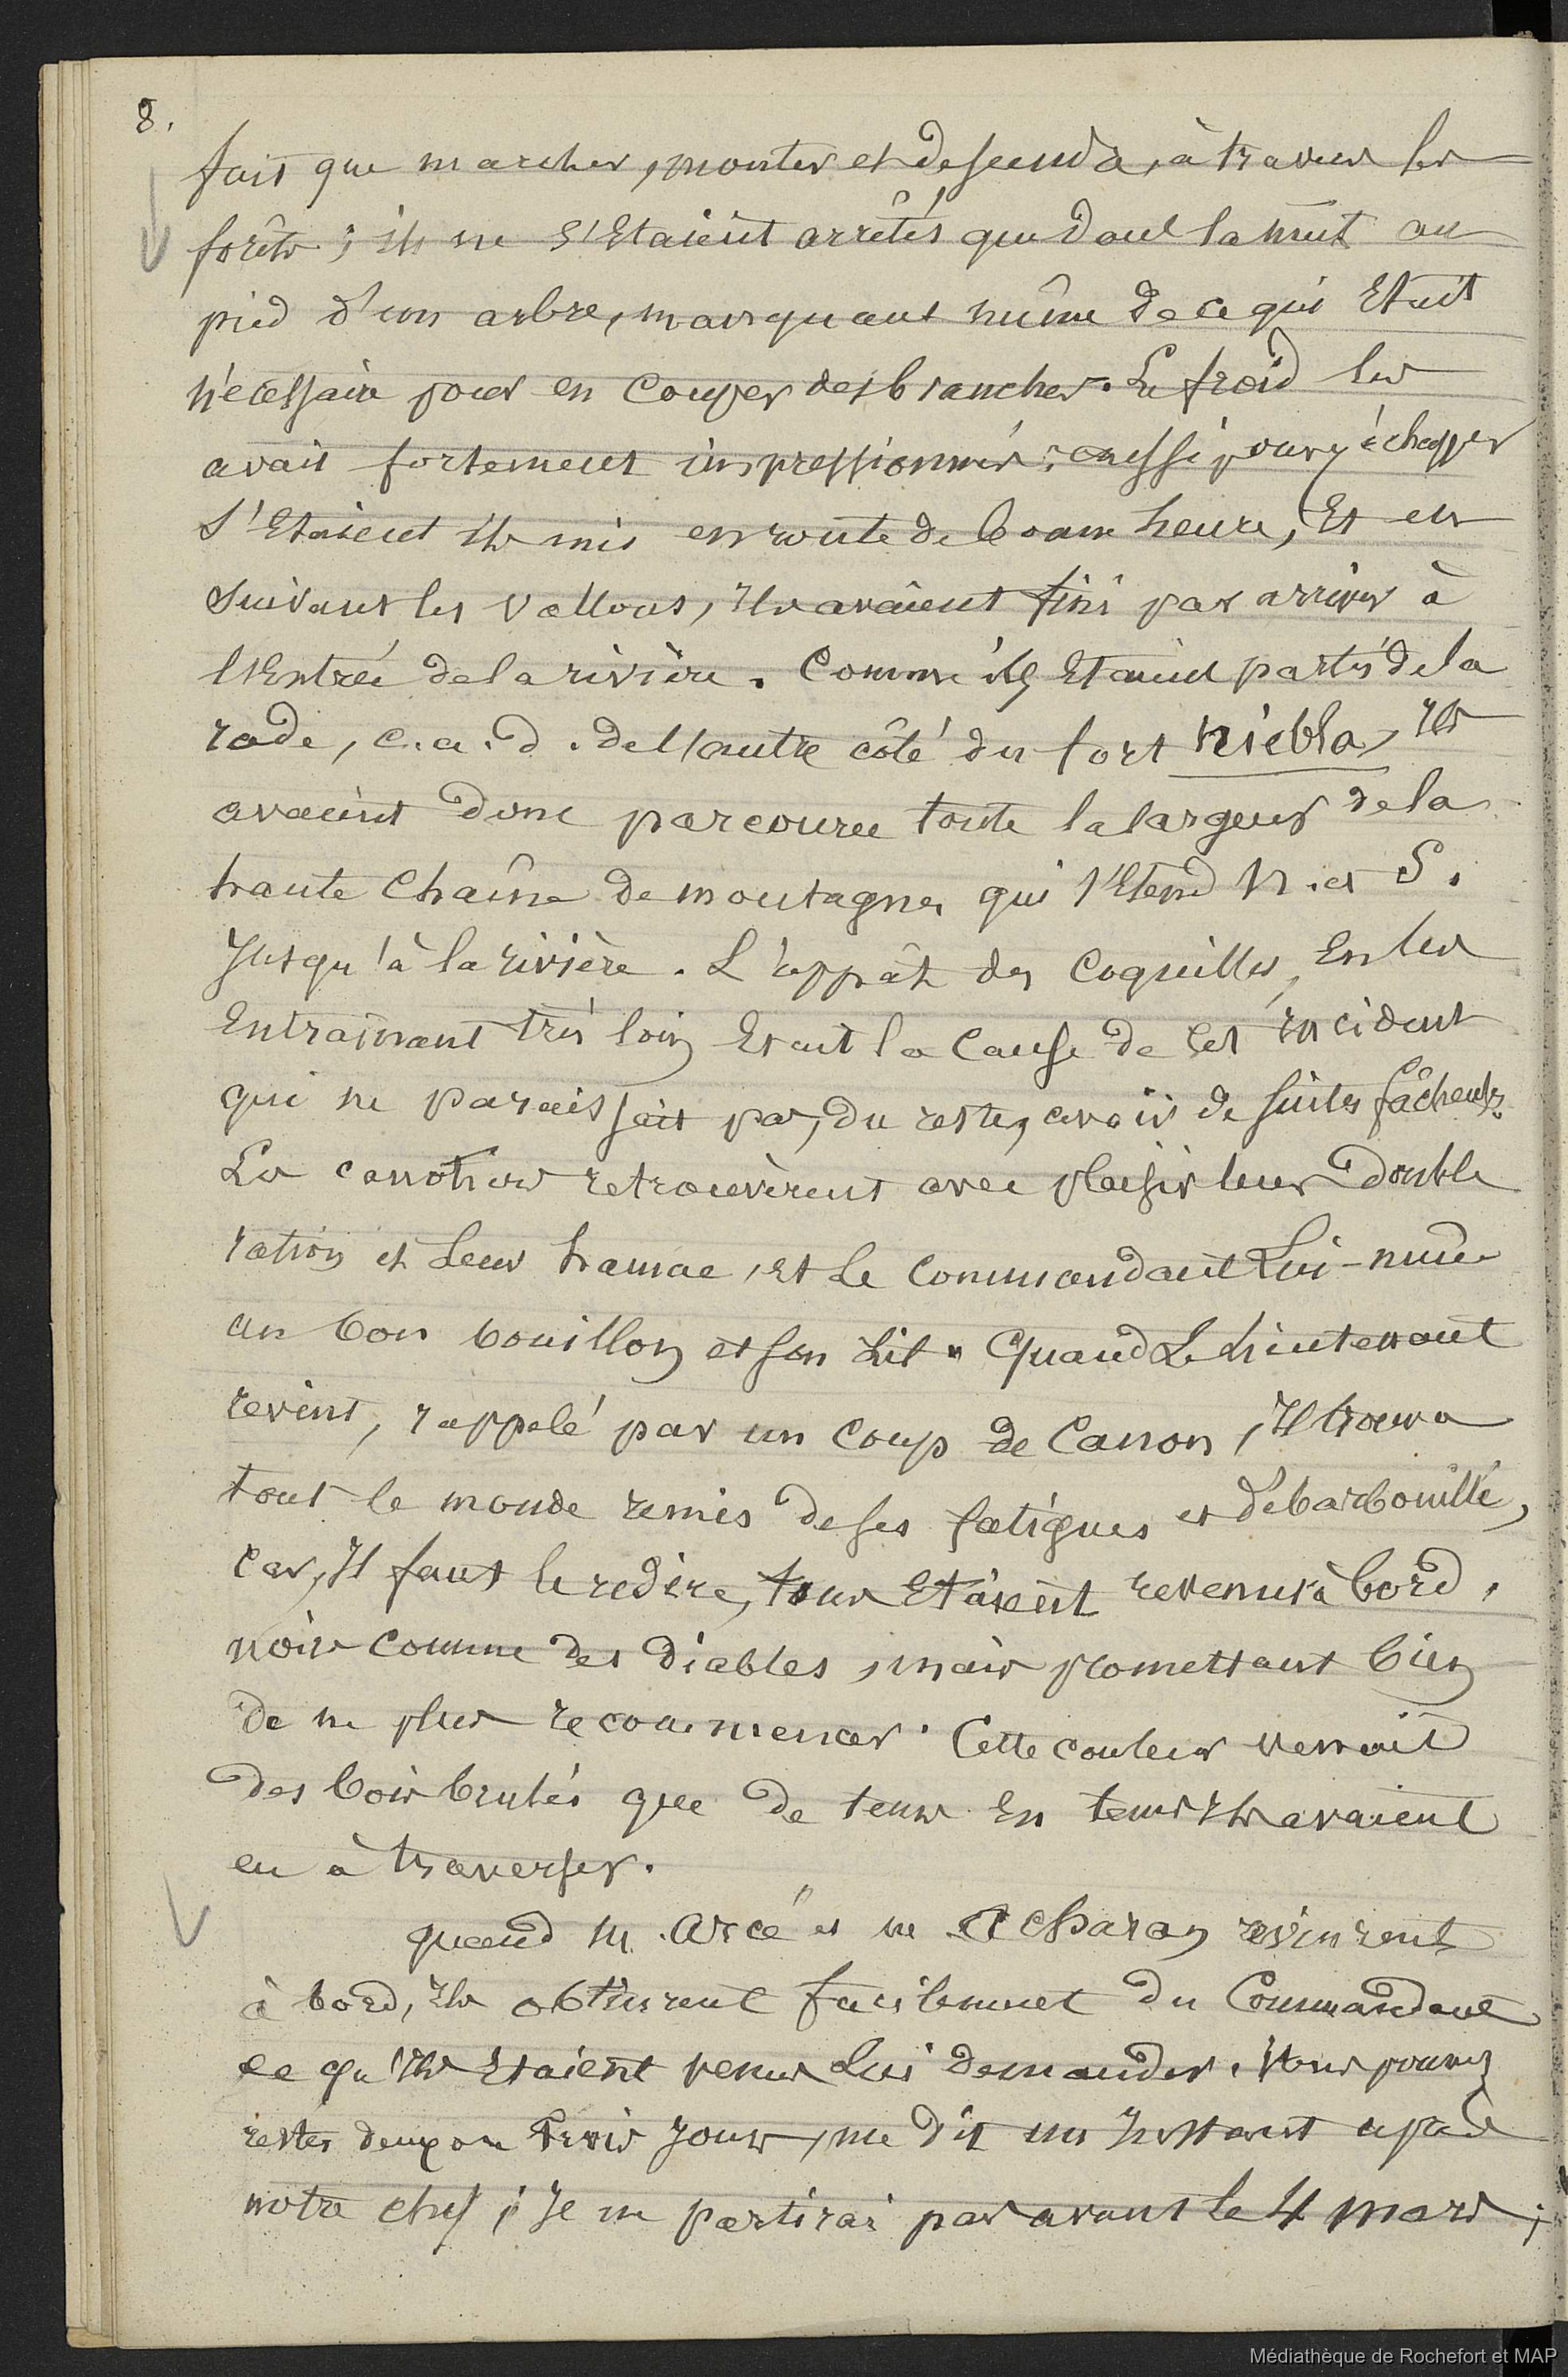 8.
fait que marcher, monter et descendre, à travers les
forêts ; ils ne s'Etaient arrêtés que dans la nuit au
pied d'un arbre, manquant même de ce qui Etait
nécessaire pour en couper des branches. Le froid les
avait fortement impressionnés ; aussi pour y échapper
s'Etaient ils mis en route de bonne heure, Et en
suivant les vallons, Ils avaient fini par arriver à
l'Entrée de la rivière. Comme ils Etaient partis de la
rade, c. a. d. de l'autre côté du fort Niébla, Ils
avaient donc parcouru toute la largeur de la
haute Chaîne de montagnes qui s'Etend N. et S.
Jusqu'à la rivière. L'appât des Coquilles, En les
Entrainant très loin Etait la Cause de cet incident
qui ne paraissait pas, du reste, avoir de suites fâcheuses.
Les canotiers retrouvèrent avec plaisir leur Double
ration et Leur hamac, Et Le Commandant Lui-même
un bon bouillon et son Lit. Quand Le Lieutenant
revint, rappelé par un Coup de Canon, Il trouva
tout le monde remis de ses fatigues et débarbouillé,
Car, Il faut le redire, tous Etaient revenus à bord,
noirs comme des Diables, mais promettant bien
de ne plus recommencer. Cette couleur venait
des bois brulés que de tems En tems Ils avaient
eu à traverser.
Quand M. Arcé et M. Acharan revinrent
à bord, Ils obtinrent facilement du Commandant
ce qu'Ils Etaient venus Lui demander. Vous pouvez
rester deux ou trois Jours, me dit un Instant après
notre chef ; Je ne partirai pas avant le 4 mars ;
Médiathèque de Rochefort et MAP